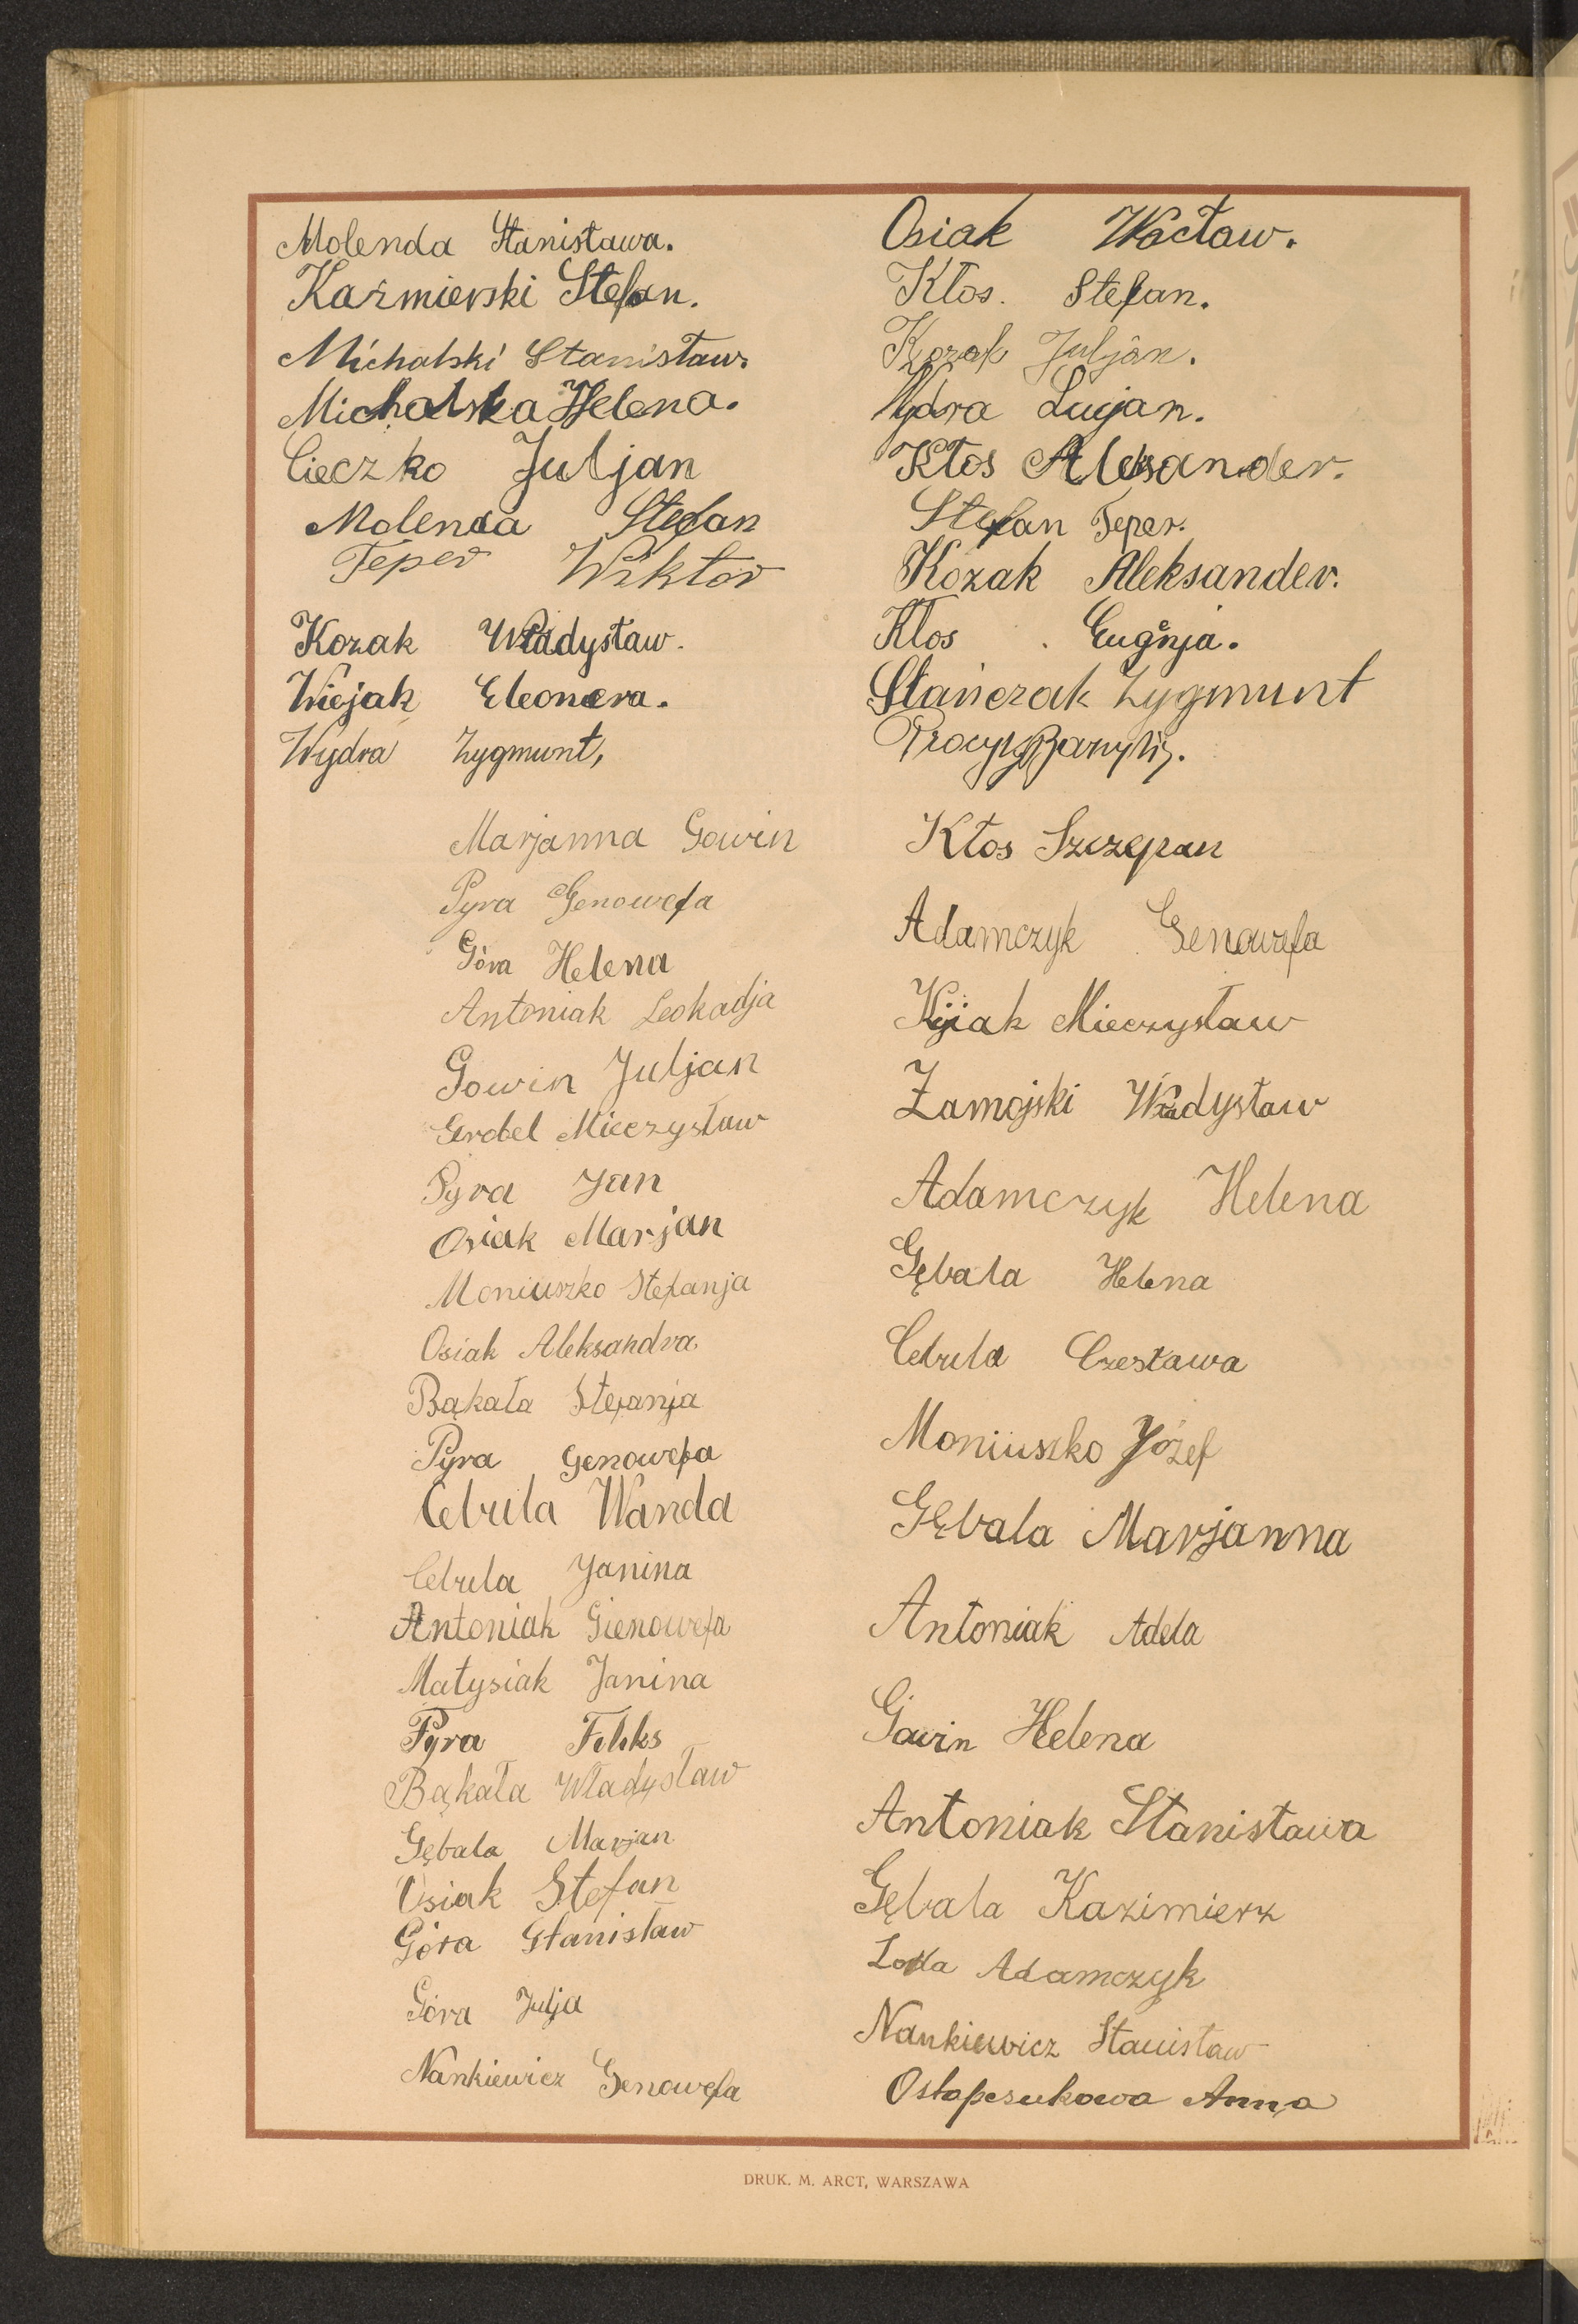 Molenda Stanisława.
Kaźmierski Stefan.
Michalski Stanisław.
Michalska Helena.
Cieczko Juljan
Molenda Stefan
Teper Wiktor
Kozak Władysław.
Wiejak Eleonora.
Wydra Zygmunt,
Marjanna Gowin
Pyra Genowefa
Góra Helena
Antoniak Leokadja
Gowin Juljan
Grobel Mieczysław
Pyra Jan
Osiak Marjan
Moniuszko Stefanja
Osiak Aleksandra
Bąkała Stefanja
Pyra Genowefa
Cebula Wanda
Cebula Janina
Antoniak Gienowefa
Matysiak Janina
Pyra Feliks
Bąkała Władysław
Gębala Marjan
Osiak Stefan
Góra Stanisław
Góra Julja
Nankiewicz Genowefa
Osiak Wacław.
Kłos. Stefan.
Kozak Juljan.
Wydra Lucjan.
Kłos Aleksander.
Stefan Teper.
Kozak Aleksander.
Kłos Eugenja.
Stańczak Zygmunt
Kłos Szczepan
Adamczyk Genowefa
Kijak Mieczysław
Zamojski Władysław
Adamczyk Helena
Gębala Helena
Cebula Czesława
Moniuszko Józef
Gębala Marjanna
Antoniak Adela
Gowin Helena
Antoniak Stanisława
Gębala Kazimierz
Adamczyk
Nankiewicz Stanisław
Ostapczukowa Anna
DRUK. M. ARCT, WARSZAWA